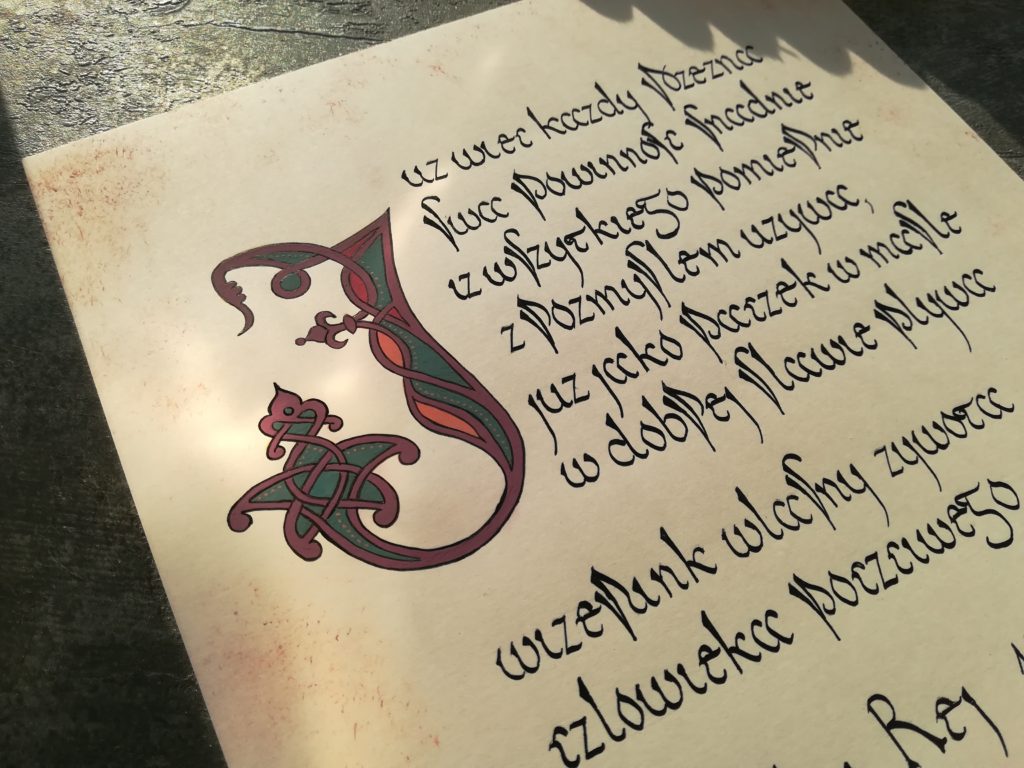 Juz wiec kazdy rozezna
swa powinnosc snadnie
iz wszytkiego pomiernie
z rozmyslem uzywa,
juz jako paczek w masle
w dobrej slawie plywa
wizerunk wlasny zywota
czlowieka poczciwego
Rej